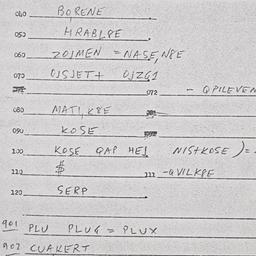 040 BORENE
050 HRABLPE
060 ZOJMEN = NASE, NPE
070 OJSJET+ OJZG1
072 - QPILEVEN
080 MATI, KPE
090 KOSE
100 KOSE QAP HEJ NISTKOSE )=-
110 $ 111 -QVILKPE
120 SERP
901 PLU PLUG = PLUX
902 CUAKERT